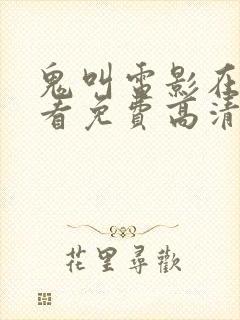 鬼叫雷影在
者免費高清
花里尋歡